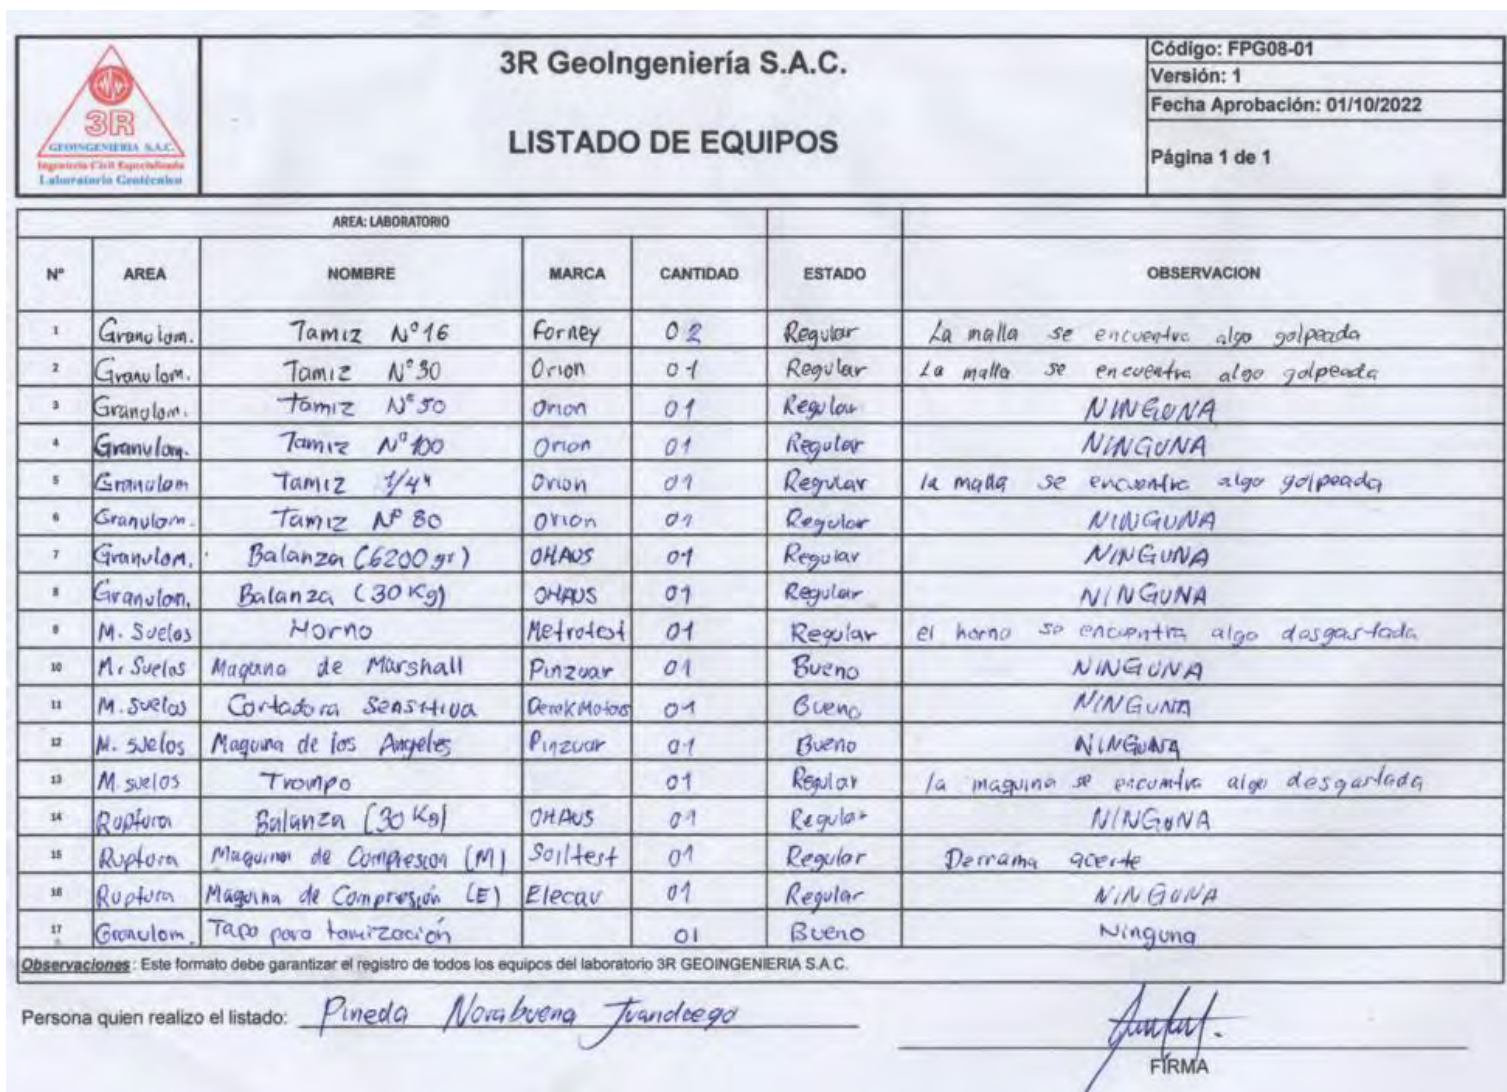 3R
GEOINGENIERIA S.A.C.
Ingeniería Civil Especializada
Laboratorio Geotécnico
3R GeoIngeniería S.A.C.
LISTADO DE EQUIPOS
Código: FPG08-01
Versión: 1
Fecha Aprobación: 01/10/2022
Página 1 de 1
AREA: LABORATORIO
N° AREA NOMBRE MARCA CANTIDAD ESTADO OBSERVACION
1 Granulom. Tamiz N°16 Forney 02 Regular La malla se encuentra algo golpeada
2 Granulom. Tamiz N°30 Orion 01 Regular La malla se encuentra algo golpeada
3 Granulom. Tamiz N°50 Orion 01 Regular NINGUNA
4 Granulom. Tamiz N°100 Orion 01 Regular NINGUNA
5 Granulom Tamiz 1/4" Orion 01 Regular la malla se encuentra algo golpeada
6 Granulom. Tamiz N° 80 Orion 01 Regular NINGUNA
7 Granulom. Balanza (6200 gr) OHAUS 01 Regular NINGUNA
8 Granulom. Balanza (30 Kg) OHAUS 01 Regular NINGUNA
9 M. Suelos Horno Metrotest 01 Regular el horno se encuentra algo desgastada
10 M. Suelos Maquina de Marshall Pinzuar 01 Bueno NINGUNA
11 M. Suelos Cortadora Sensitiva DerekMotors 01 Bueno NINGUNA
12 M. suelos Maquina de los Angeles Pinzuar 01 Bueno NINGUNA
13 M. suelos Trompo 01 Regular la maquina se encuentra algo desgastada
14 Ruptura Balanza (30 Kg) OHAUS 01 Regular NINGUNA
15 Ruptura Maquina de Compresion (M) Soiltest 01 Regular Derrama aceite
16 Ruptura Maquina de Compresión (E) Elecav 01 Regular NINGUNA
17 Granulom. Tapa para tamización 01 Bueno Ninguna
Observaciones: Este formato debe garantizar el registro de todos los equipos del laboratorio 3R GEOINGENIERIA S.A.C.
Persona quien realizo el listado: Pineda Norabuena Juandiego
FIRMA